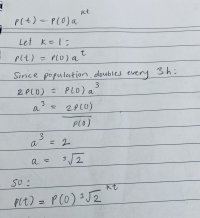 P(t) = P(0) a^kt
Let k = 1 :
P(t) = P(0) a^t
Since population doubles every 3h:
2P(0) = P(0) a^3
a^3 = 2P(0)
P(0)
a^3 = 2
a = ³√2
So :
P(t) = P(0) ³√2^kt